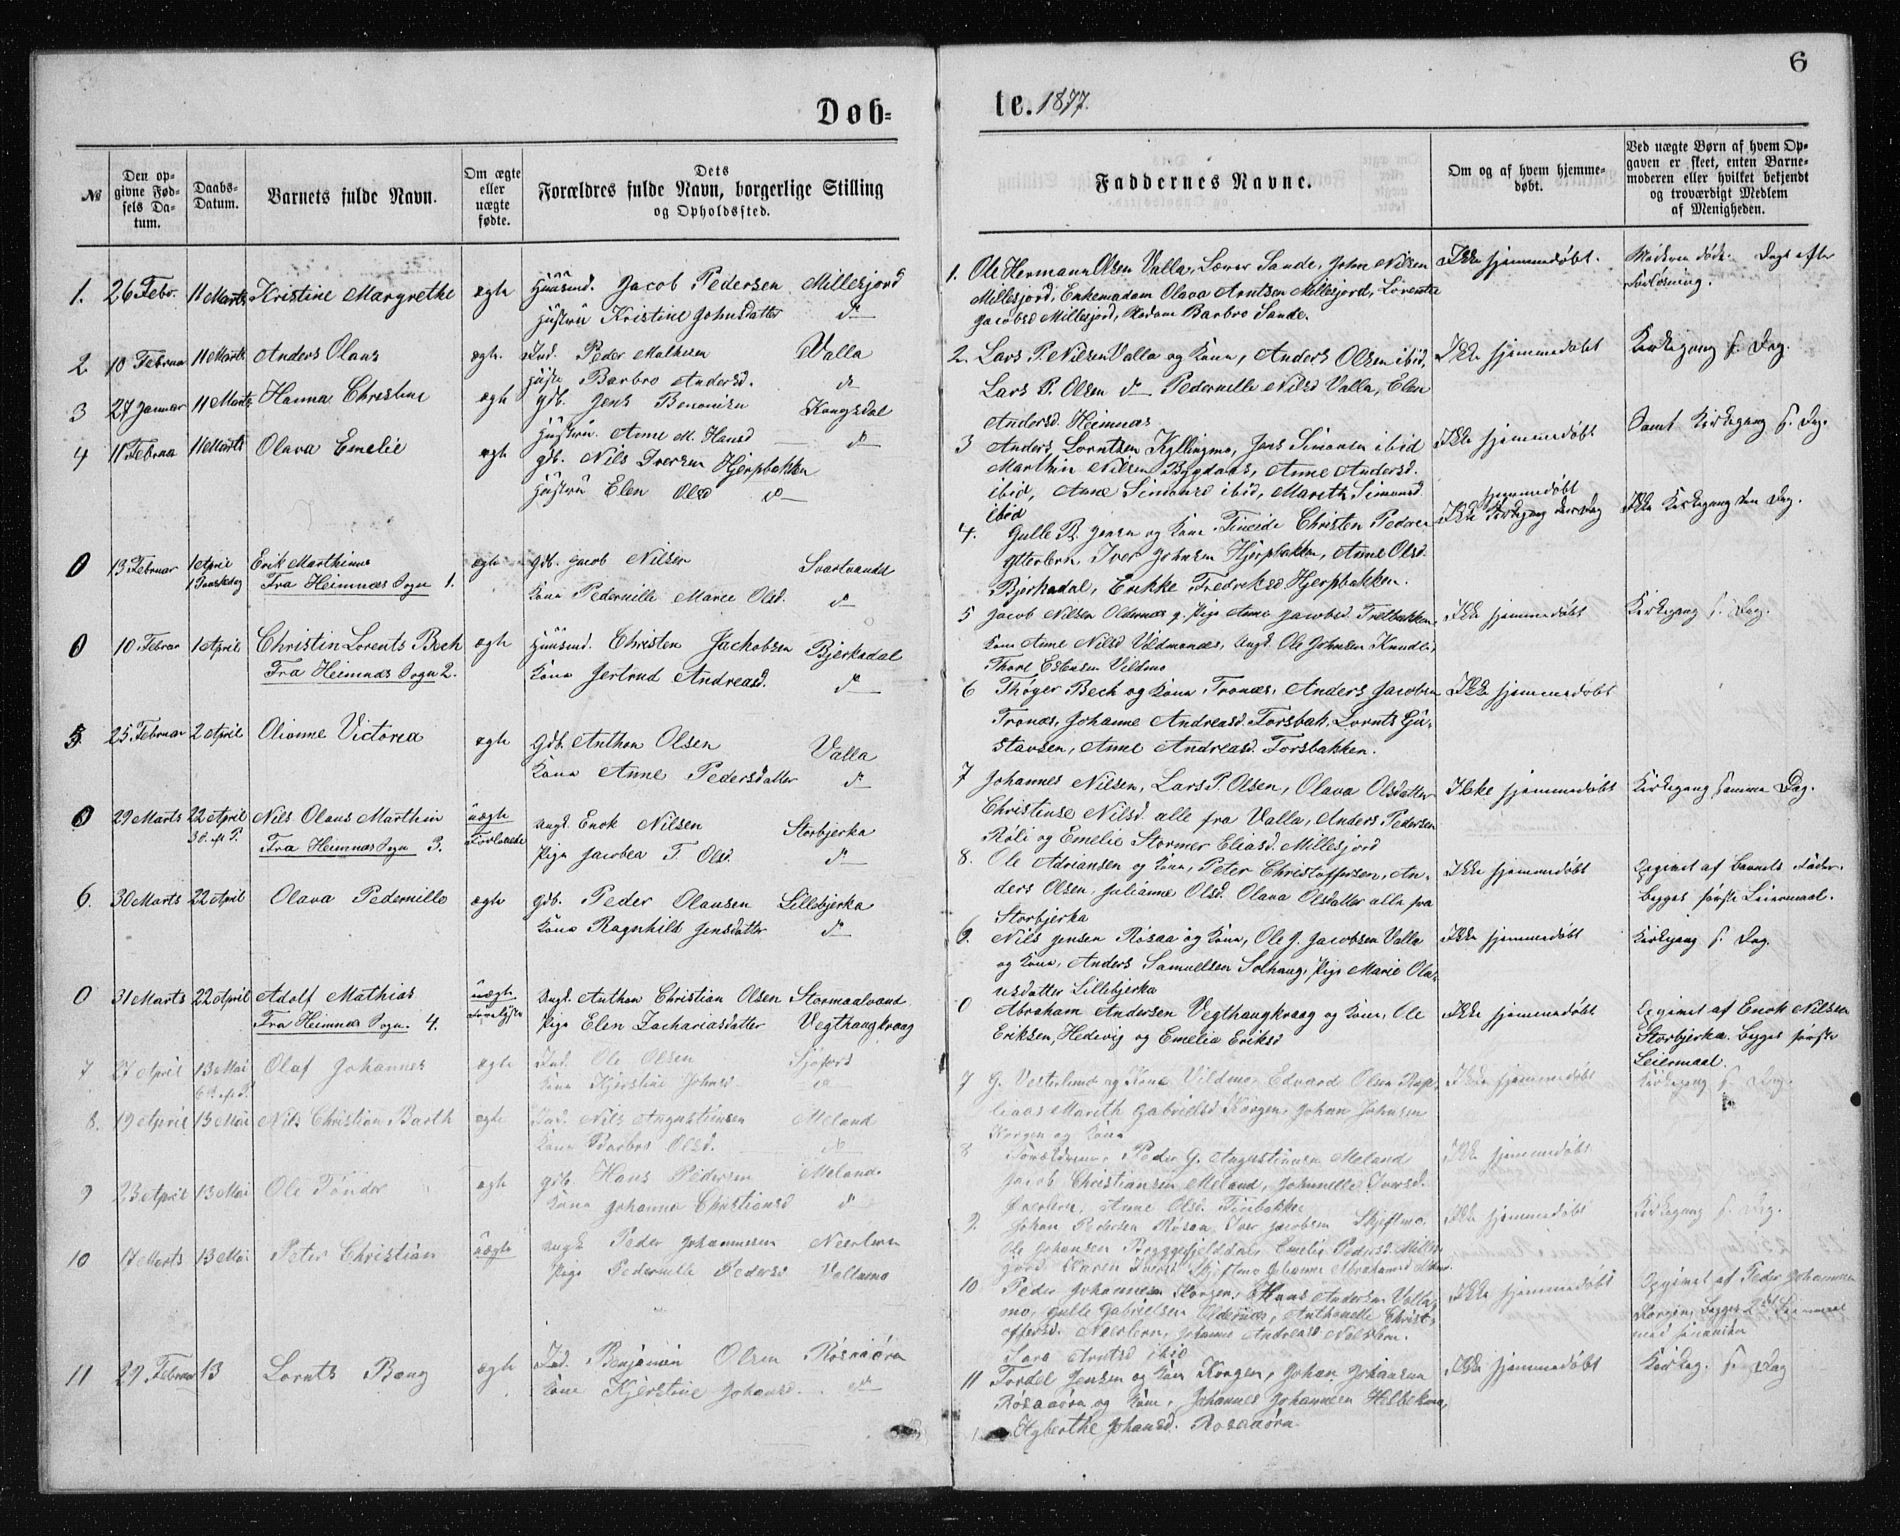 6
Døb-
te. 1877.
№
Den op-
givne Fød-
sels Da-
tum.
Daabs-
Datum.
Barnets fulde Navn.
Om ægte
eller
uægte
fødte.
Dets
Forældres fulde Navn, borgerlige Stilling
og Opholdssted.
1. 26 Febr. 11 Marts Kristine Margrethe ægte Huusmd. Jacob Pedersen Millesjord
Hustru Kristine Johnsdatter do
2 10 Februar 11 Marts Anders Olaus ægte. Ind. Peder Mathisen Valla
Barbro Andersd. do
3 27 Januar 11 Marts Hanna Christine ægte Gdb. Jens Benonisen Kongsdal
Hustru Anne M. Hansd do
4 11 Februar 11 Marts Olava Emelie ægte Gdb. Nils Iversen Hjerpbakken
Hustru Elen Olsd do
0 13 Februar 1 April Erik Marthinus ægte Gdb. Jacob Nilsen Svartvandet
1 Paaskedag Fra Heimnæs Sogn 1. Kone Pedernille Marie Olsd. do
0 10 Februar 1 April Christin Lorents Bech ægte Huusmd. Christen Jachobsen Bjerkadal
Fra Heimnæs Sogn 2. Kone Gertrud Andreasd. do
5 25 Februar 2 April Olianne Victoria ægte Gdb. Anthon Olsen Valla
Kone Anne Pedersdatter do
0 29 Marts 22 April Nils Olaus Marthin uægte Ungk. Enok Nilsen Storbjerka
3 S. eft P. Fra Heimnæs Sogn 3. Forlovede Pige Jacobea T. Olsd. do
6. 30 Marts 22 April Olava Pedernille ægte Gdb. Peder Olausen Lillebjerka
Kone Ragnhild Jensdatter do
0 31 Marts 22 April Adolf Mathias uægte Ungk. Anthon Christian Olsen Stormaalvand
Fra Heimnæs Sogn. 4. Pige Elen Zachariasdatter Vegthaugkraag
7 27 April 13 Mai Olaf Johannes ægte Ind. Ole Olsen Sjofors
Kone Kjerstine Johnsd do
8. 19 April 13 Mai Nils Christian Barth ægte Ind. Nils Augustinsen Meland
Kone Barbro Olsd. do
9 23 April 13 Mai Ole Tønder ægte Gdb. Hans Pedersen Meland.
Kone Johanna Christiansd do
10 17 Marts 13 Mai Peter Christian uægte Ungk Peder Johannesen Neerleren
Pige Pedernille Pedersd Vallamo
11 29 Februar 13 Lornts Bang ægte Ind. Benjamin Olsen Røsaaøra
Kone Kjerstine Johansd. do
Faddernes Navne.
Om og af hvem hjemme-
døbt.
Ved uægte Børn af hvem Op-
gaven er skeet, enten Barne-
moderen eller hvilket bekjendt
og troværdigt Medlem
af Menigheden.
1. Ole Hermann Olsen Valla, Lærer Sande, John Nilsen Ikke hjemmedøbt. Moderen døde Dage efter
Millesjord, Enkemadam Olava Arntsen Millesjord, Lorentse Forløsning.
Jacobsd Millesjord, Madam Barbro Sande.
2. Lars P. Nilsen Valla og Kone, Anders Olsen ibid, Ikke hjemmedøbt Kirkegang s. Dag.
Lars P. Olsen do Pedernille Nilsd Valla, Elen
Andersd. Heimnæs
3 Anders Lorntsen Kyllingmo, Jens Simonsen ibid Ikke hjemmedøbt Samt Kirkegang s. Dag.
Marthin Nilsen Bygdaas, Anne Andersd.
ibid, Anne Simonsd ibid, Mareth Simonsd
ibid
4. Gulle B. Jensen og Kone Fineide Christen Pedersen Ikke hjemmedøbt Ikke Kirkegang den Dag.
Ytterleren, Iver Johnsen Hjerpbakken, Anne Olsd.
Bjerkadal, Enkke Fredriksd Hjerpbakken.
5 Jacob Nilsen Oldernæs g. Pige Anne Jacobsd. Trolbakken, Ikke hjemmedøbt Kirkegang s. Dag.
Kone Anne Nilsd Vildmonæs, Ungk. Ole Johnsen Knudli,
Thore Estensen Vildmo
6 Thøger Bech og Kone, Tronæs, Anders Jacobsen Ikke hjemmedøbt
Tronæs, Johanne Andreasd. Forsbak. Lornts Gu-
stavsen, Anne Andreasd. Forsbakken.
7 Johannes Nilsen, Lars P. Olsen, Olava Olsdatter Ikke hjemmedøbt Kirkegang samme Dag.
Christense Nilsd. alle fra Valla, Anders Pedersen
Røli og Emelie Stormer Eliasd. Millesjord
8. Ole Adriansen og Kone, Peter Christoffersen, An- Ikke hjemmedøbt Opgivet af Barnets Fader.
ders Olsen, Julianne Olsd. Olava Olsdatter alle fra Begges første Leiermaal.
Storbjerka
6. Nils Jensen Røsaa og Kone, Ole J. Jacobsen Valla Ikke hjemmedøbt Kirkegang s. Dag.
og Kone, Anders Samuelsen Solhaug, Pige Marie Ola-
usdatter Lillebjerka
0 Abraham Andersen Vegthaugkraag og Kone, Ole Ikke hjemmedøbt Opgivet af Enok Nilsen
Eriksen, Hedevig og Emelia Eriksd Storbjerka. Begges første
Leiermaal.
7 G. Vesterlund og Kone Vildmo, Edvard Olsen Ikke hjemmedøbt Kirkegang s. Dag.
Mareth Gabrielsd Korgen, Johan Johnsen
Korgen og Kone
8 Forældrene, Peder G. Augustinsen Meland Ikke hjemmedøbt
Jacob Christiansen Meland, Johnnelle Iversd.
Anne Olsd.
9. Johan Pedersen Røsaa, Iver Jacobsen Skjeftmo. Ikke hjemmedøbt Kirkegang s. Dag.
Ole Johansen Bryggefjelddal, Emelie Pedersd Milles-
jord Maren Iversd Skjeftmo Johanne Abrahamsd
10 Peder Johannesen Korgen, Hans Andersen Valla- Ikke hjemmedøbt Opgivet af Peder Johannesen
mo, Gulle Gabrielsen Oldernæs, Anthonelle Christ- Korgen, Begges 2det Leiermaal
offersd. Neerleren, Johanne Andreasd Neerleren. med hinanden
Sara Arntsd ibid
11 Tordel Jensen og Kone Korgen, Johan Johansen Ikke hjemmedøbt Kirkeg. s. Dag
Røsaaøra og Kone, Johannes Johannesen
Elgberthe Johansd. Røsaaøra